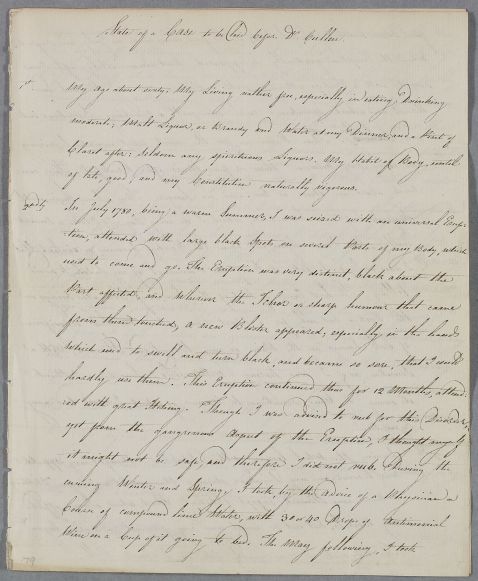 State of a Case to be laid before Dr Cullen.
1st My Age about sixty; My Living rather free, especially in eating; Drinking
moderate; Malt Liquor, or Brandy and Water at my Dinner, and a Pint of
Claret after; seldom any spirituous Liquors. My Habit of Body, until
of late, good, and my Constitution naturally vigorous.
2dly In July 1780, being a warm Summer, I was seized with an universal Erup-
tion, attended with large black Spots on several Parts of my Body, which
used to come and go. The Eruption was very distinct, black about the
Part affected, and wherever the Ichor or sharp humour that came
from them touched, a new Blister appeared, especially in the hands
which used to swell and turn black, and became so sore, that I could
hardly use them. This Eruption continued thus for 12 Months, attend-
ed with great Itching. Though I was advised to rub for this Disorder,
yet from the dangerous Aspect of the Eruption, I thought myself
it might not be safe, and therefore I did not rub. During the
ensuing Winter and Spring, I took, by the Advice of a Physician a
Course of compound lime Water, with 30 or 40 Drops of Antimonial
Wine in a Cup of it going to bed. The May following, I took